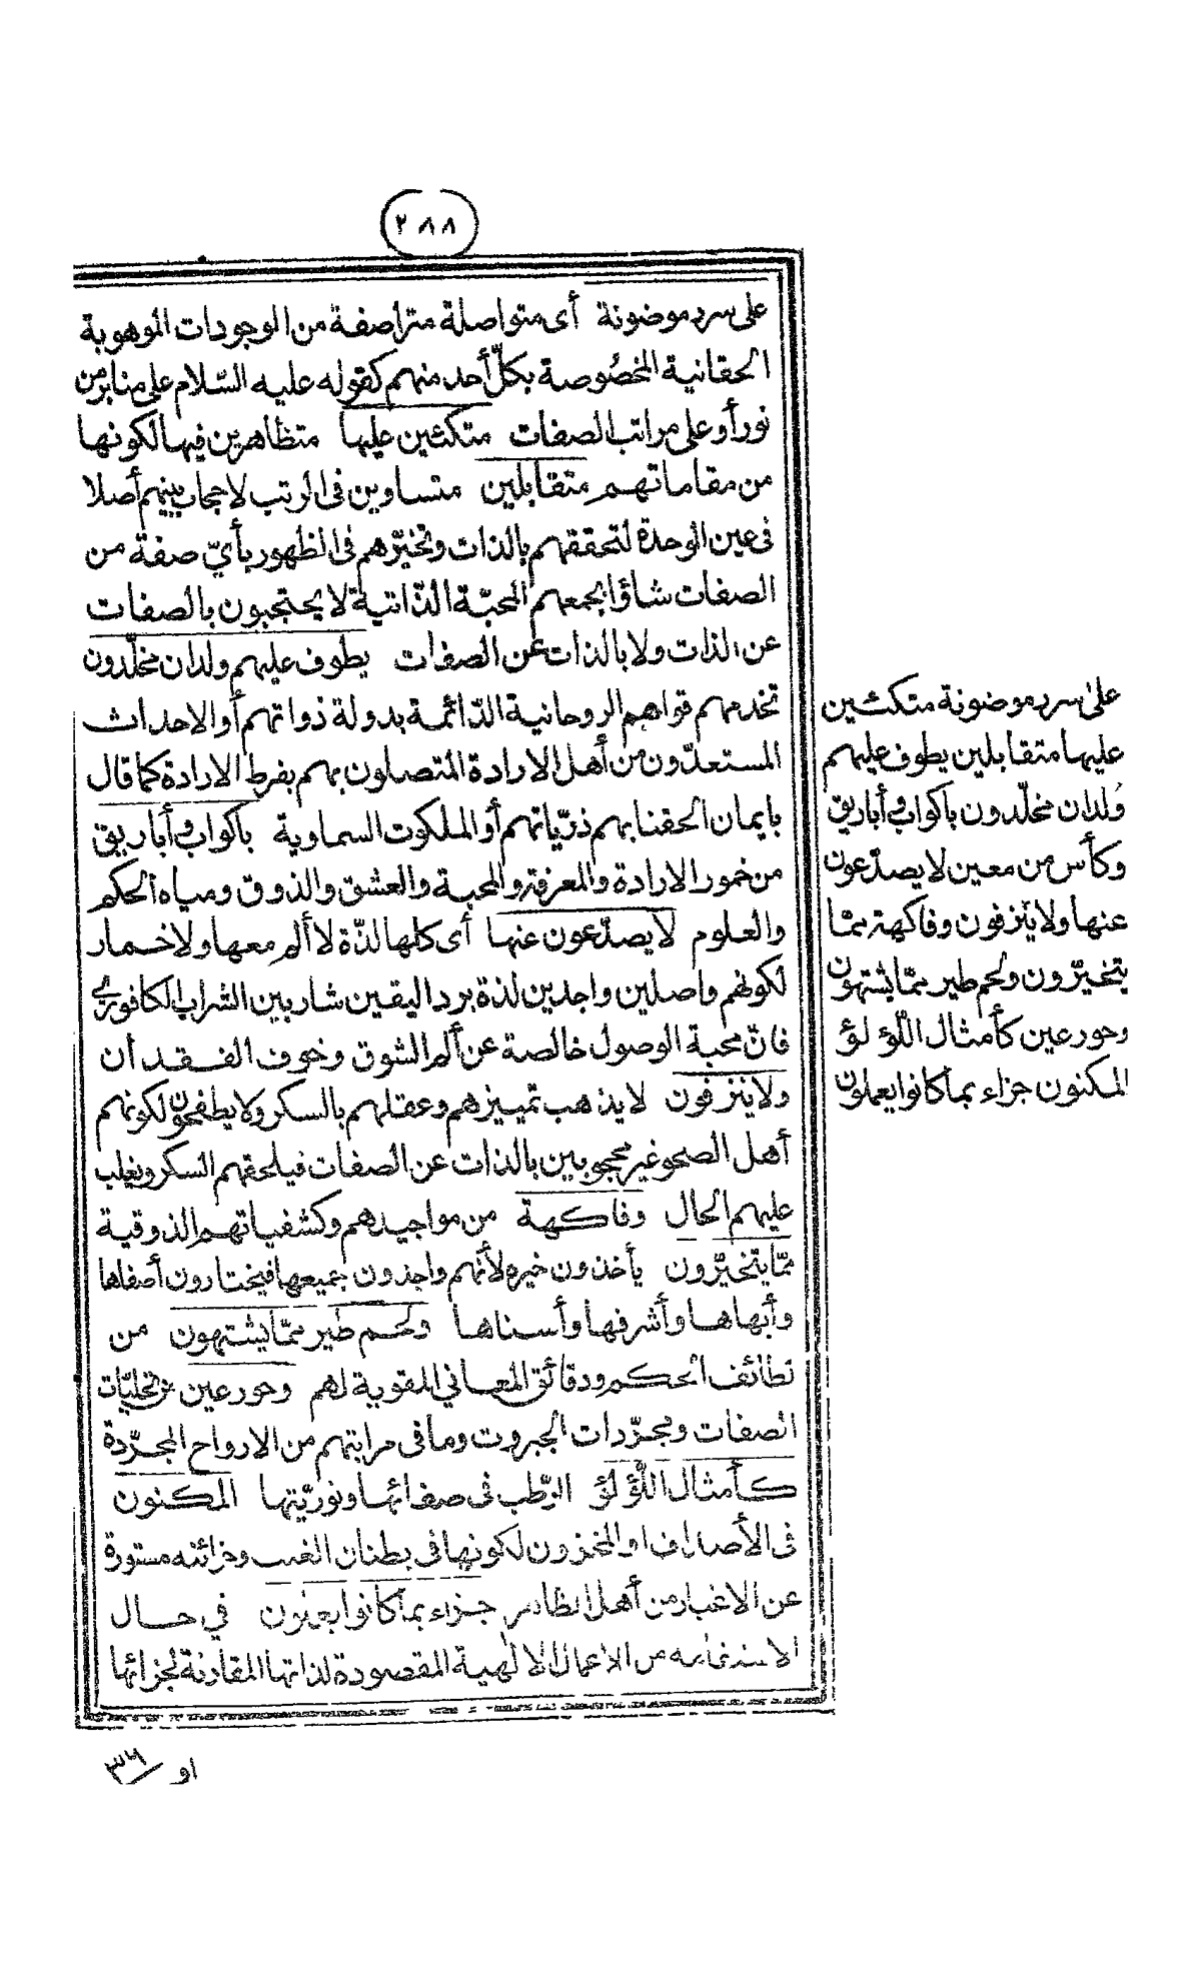 ٢٨٨
على سرر موضونة أى متواصلة متراصفة من الوجودات الموهوبة
الحقانية المخصوصة بكلّ أحد منهم كقوله عليه السّلام على منابر من
نور أو على مراتب الصفات متكئين عليها متظاهرين فيها لكونها
من مقاماتهم متقابلين متساوين فى الرتب لا حجاب بينهم أصلا
فى عين الوحدة لتحققهم بالذات وتخيّرهم فى الظهور بأيّ صفة من
الصفات شاؤا بجمعهم المحبّة الذّاتية لا يحتجبون بالصفات
عن الذات ولا بالذات عن الصفات يطوف عليهم ولدان مخلّدون
تخدمهم قواهم الروحانية الدّائمة بدولة ذواتهم أو الاحداث
المستعدّون من أهل الارادة المتصلون بهم بفرط الارادة كما قال
بايمان الحقنا بهم ذرّياتهم أو الملكوت السماوية باكواب وأباريق
من خمور الارادة والمعرفة والمحبة والعشق والذوق ومياه الحكم
والعلوم لا يصدّعون عنها أى كلها لذّة لا ألم معها ولا خمار
لكونهم واصلين واجدين لذة برد اليقين شاربين الشراب الكافوريّ
فانّ محبة الوصول خالصة عن ألم الشوق وخوف الفقدان
ولا ينزفون لا يذهب تمييزهم وعقلهم بالسكر ولا يطفحون لكونهم
أهل الصحو غير محجوبين بالذات عن الصفات فيلحقهم السكر ويغلب
عليهم الحال وفاكهة من مواجيدهم وكشفياتهم الذوقية
ممّا يتخيّرون يأخذون خيره لأنهم واجدون جميعها فيختارون أصفاها
وأبهاها وأشرفها وأسناها ولحم طير ممّا يشتهون من
لطائف الحكم ودقائق المعاني المقوية لهم وحور عين من تجليّات
الصفات ومجرّدات الجبروت وما فى مراتبهم من الارواح المجرّدة
كأمثال اللّؤلؤ الرّطب فى صفائها ونوريّتها المكنون
فى الأصداف او المخزون لكونها فى بطنان الغيب وخزائنه مستورة
عن الاغيار من أهل الظاهر جزاء بما كانوا يعملون في حال
الاستقامه من الاعمال الالهية المقصودة لذاتها المقارنة لجزائها
على سرر موضونة متكئين
عليها متقابلين يطوف عليهم
ولدان مخلّدون باكواب وأباريق
وكأس من معين لا يصدّعون
عنها ولا ينزفون وفاكهة ممّا
يتخيّرون ولحم طير ممّا يشتهون
وحور عين كأمثال اللّؤلؤ
المكنون جزاء بما كانوا يعملون
او ٣٦